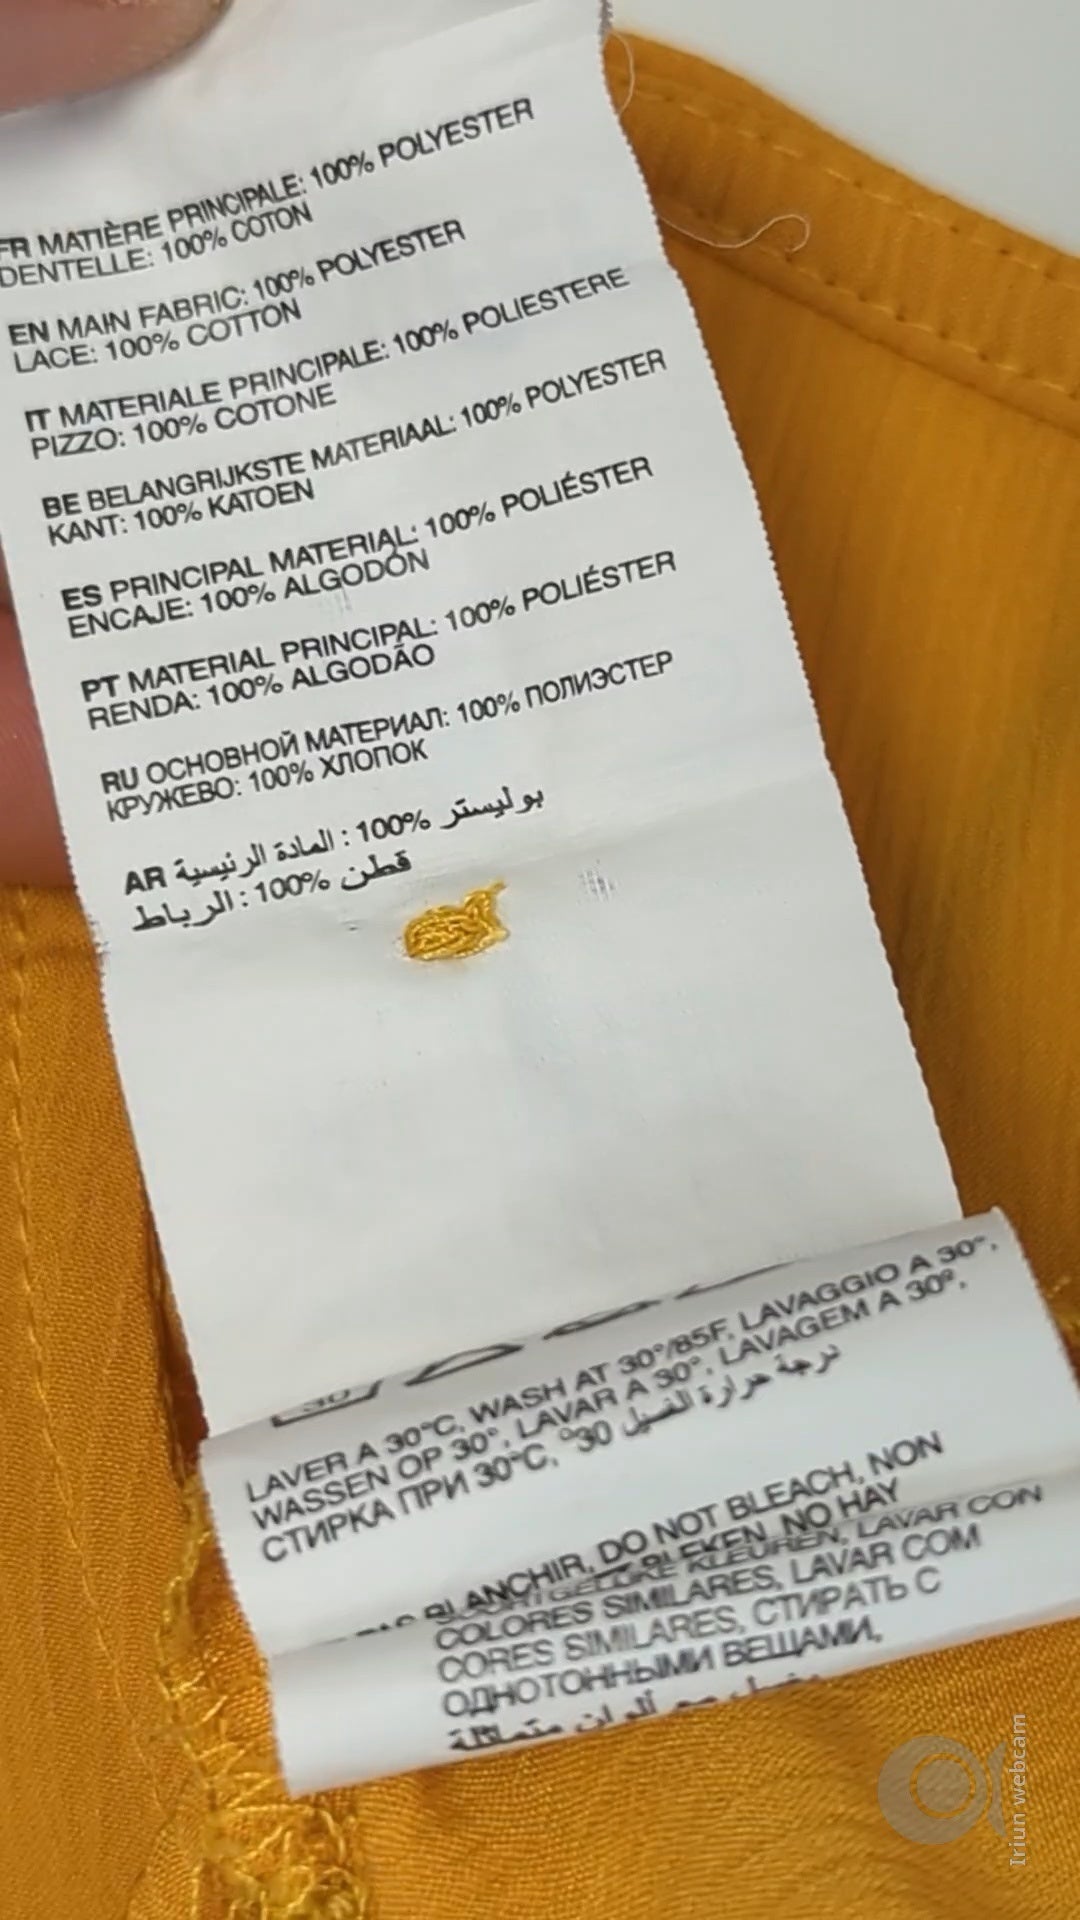 FR MATIÈRE PRINCIPALE: 100% POLYESTER
DENTELLE: 100% COTON
EN MAIN FABRIC: 100% POLYESTER
LACE: 100% COTTON
IT MATERIALE PRINCIPALE: 100% POLIESTERE
PIZZO: 100% COTONE
BE BELANGRIJKSTE MATERIAAL: 100% POLYESTER
KANT: 100% KATOEN
ES PRINCIPAL MATERIAL: 100% POLIÉSTER
ENCAJE: 100% ALGODÓN
PT MATERIAL PRINCIPAL: 100% POLIÉSTER
RENDA: 100% ALGODÃO
RU ОСНОВНОЙ МАТЕРИАЛ: 100% ПОЛИЭСТЕР
КРУЖЕВО: 100% ХЛОПОК
AR المادة الرئيسية : 100% بوليستر
الرباط : 100% قطن
LAVER A 30°C, WASH AT 30°/85F, LAVAGGIO A 30°,
WASSEN OP 30°, LAVAR A 30°, LAVAGEM A 30º,
СТИРКА ПРИ 30°C, °30 درجة حرارة الغسيل
BLANCHIR, DO NOT BLEACH, NON
BLEKEN, NO HAY
KLEUREN, LAVAR CON
COLORES SIMILARES, LAVAR COM
CORES SIMILARES, СТИРАТЬ С
ОДНОТОННЫМИ ВЕЩАМИ,
مع ألوان متماثلة
Iriun webcam